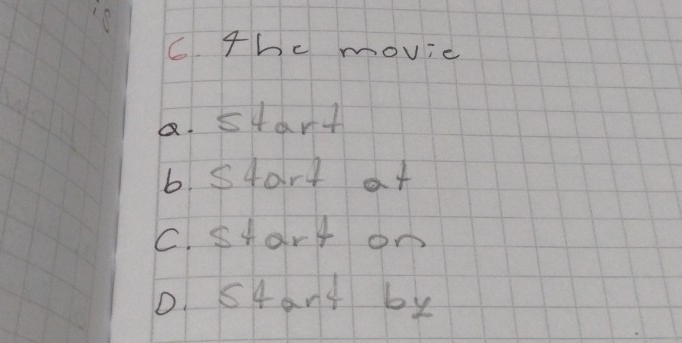 6. the movie
a. start
b. start at
C. start on
D. start by